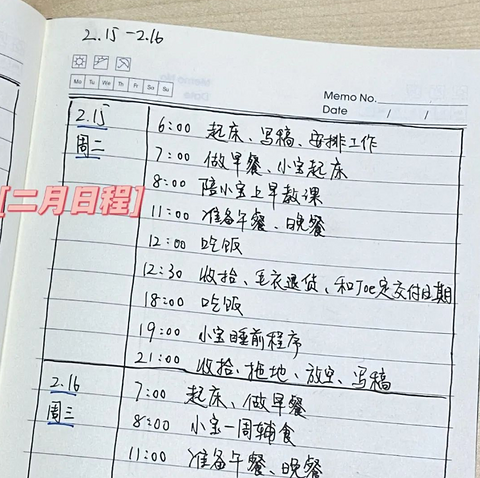 2.15-2.16
Mo Tu We Th Fr Sa Su
Memo No.
Date / /
2.15
周二
6:00 起床、写稿、安排工作
7:00 做早餐、小宝起床
8:00 陪小宝上早教课
[二月日程]
11:00 准备午餐、晚餐
12:00 吃饭
12:30 收拾、毛衣退货、和Joe定交付日期
18:00 吃饭
19:00 小宝睡前程序
21:00 收拾、拖地、放空、写稿
2.16
周三
7:00 起床、做早餐
8:00 小宝一周辅食
11:00 准备午餐、晚餐